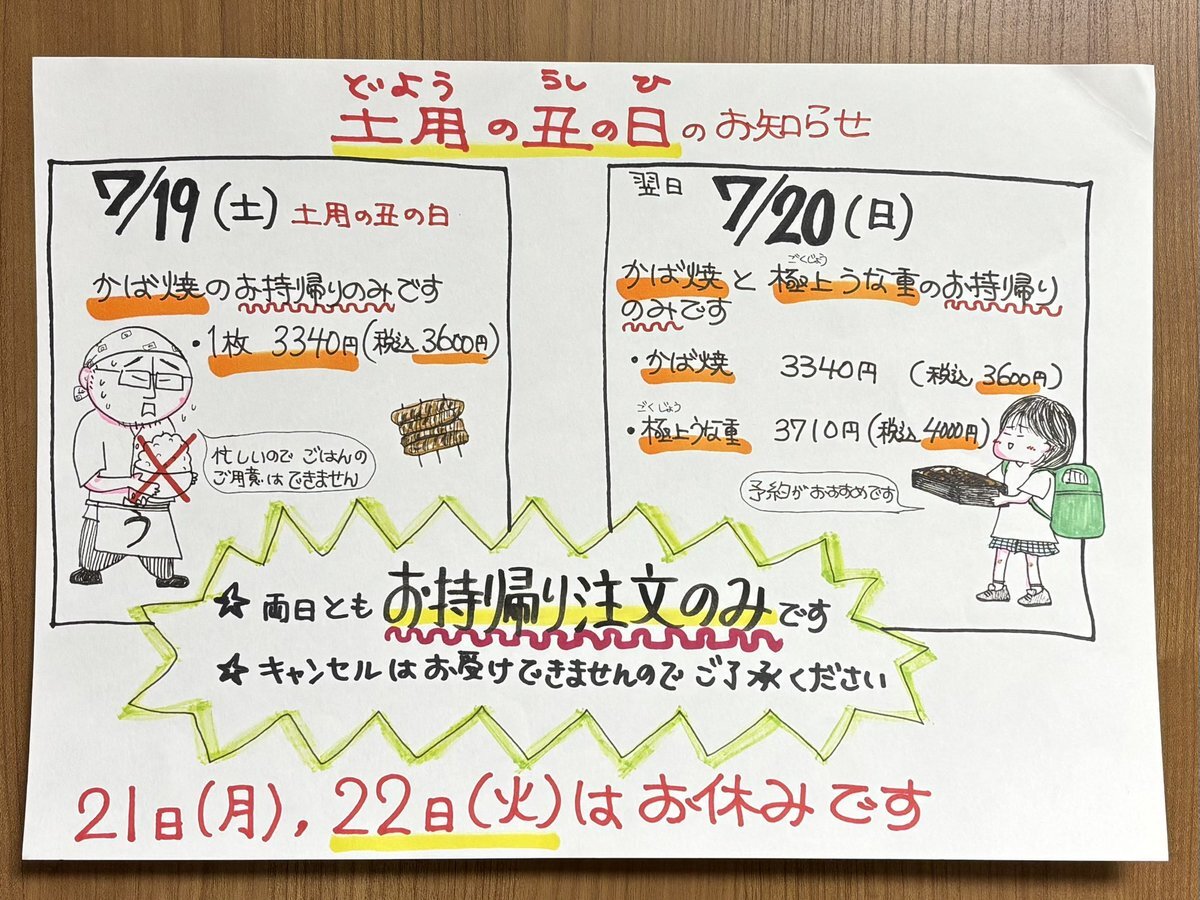 どよう うし ひ
土用の丑の日のお知らせ
7/19(土) 土用の丑の日
かば焼のお持帰りのみです
・1枚 3340円(税込3600円)
忙しいので ごはんの
ご用意はできません
う
翌日 7/20(日)
ごくじょう
かば焼と極上うな重のお持帰り
のみです
・かば焼 3340円 (税込3600円)
ごくじょう
・極上うな重 3710円(税込4000円)
予約がおすすめです
☆ 両日とも お持帰り注文のみです
☆ キャンセルはお受けできませんのでご了承ください
21日(月),22日(火)はお休みです